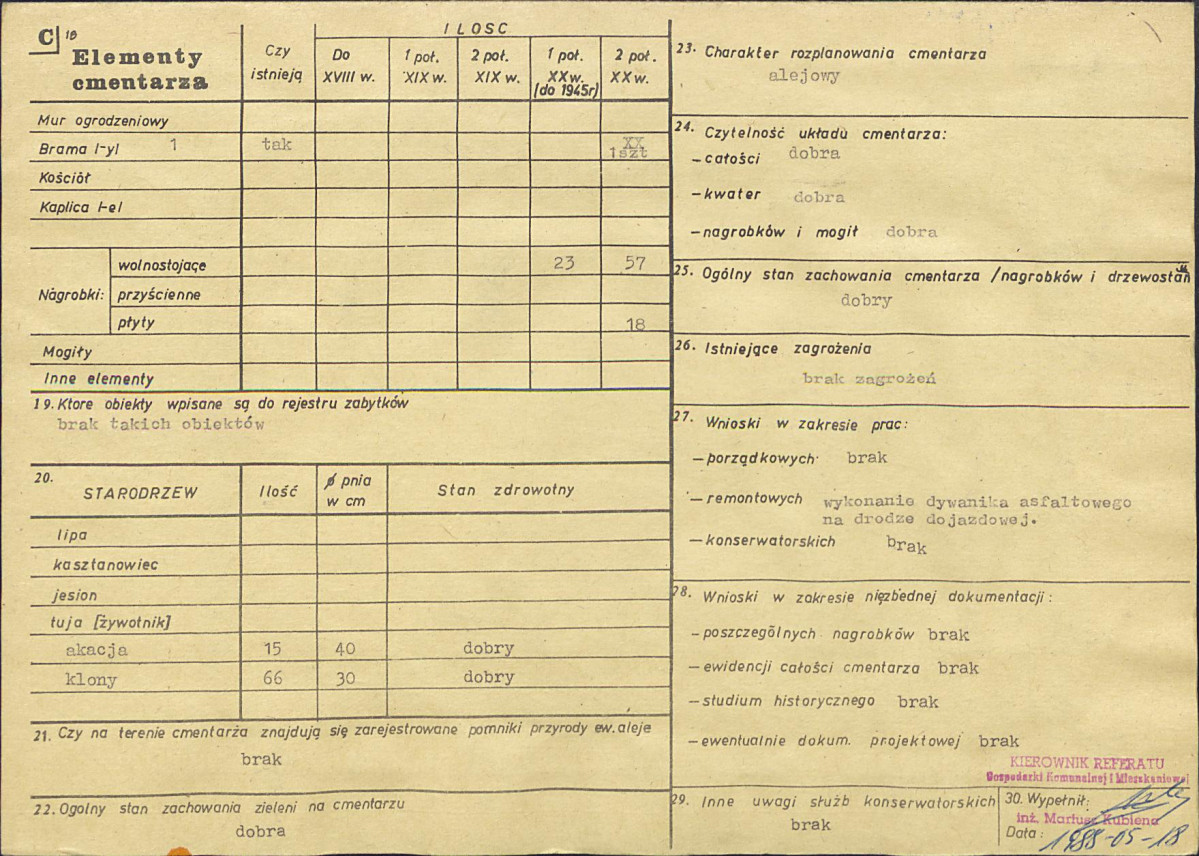 C 18
Elementy
cmentarza
Czy
istnieją
ILOSC
Do
XVIII w.
1 poł.
XIX w.
2 poł.
XIX w.
1 poł.
XX w.
(do 1945r)
2 poł.
XX w.
Mur ogrodzeniowy
Brama /-y/ 1 tak XX
1szt
Kościół
Kaplica /-e/
Nagrobki:
wolnostojące 23 57
przyścienne
płyty 18
Mogiły
Inne elementy
19. Ktore obiekty wpisane są do rejestru zabytków
brak takich obiektów
20.
STARODRZEW
Ilość
ø pnia
w cm
Stan zdrowotny
lipa
kasztanowiec
jesion
tuja [żywotnik]
akacja 15 40 dobry
klony 66 30 dobry
21. Czy na terenie cmentarża znajdują się zarejestrowane pomniki przyrody ew. aleje
brak
22. Ogolny stan zachowania zieleni na cmentarzu
dobra
23. Charakter rozplanowania cmentarza
alejowy
24. Czytelność układu cmentarza:
– całości dobra
– kwater dobra
– nagrobków i mogił dobra
25. Ogólny stan zachowania cmentarza /nagrobków i drzewostan
dobry
26. Istniejące zagrożenia
brak zagrożeń
27. Wnioski w zakresie prac:
– porządkowych brak
– remontowych wykonanie dywanika asfaltowego
na drodze dojazdowej.
– konserwatorskich brak
28. Wnioski w zakresie niezbednej dokumentacji:
– poszczególnych nagrobków brak
– ewidencji całości cmentarza brak
– studium historycznego brak
– ewentualnie dokum. projektowej brak
KIEROWNIK REFERATU
Gospodarki Komunalnej i Mieszkaniowej
29. Inne uwagi służb konserwatorskich
brak
30. Wypełnił:
inż. Mariusz Kubiena
Data: 1988-05-18